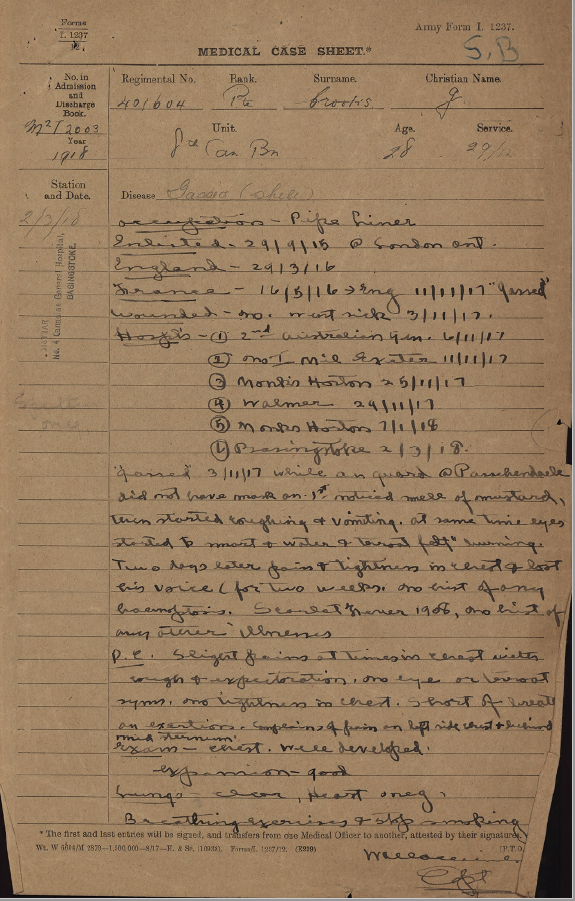 Forms
I. 1237
12.
Army Form I. 1237.
S.B
MEDICAL CASE SHEET.*
No. in Admission and Discharge Book.
M2I 2003
Year
1918
Regimental No. Rank. Surname. Christian Name.
401604 Pte Crooks G.
Unit. Age. Service.
8th Can Bn 28 29/12
Station and Date.
2/3/18
No. 4 Canadian General Hospital,
BASINGSTOKE.
Disease Gassed (shell)
Occupation - Pipe Liner
Enlisted - 29/9/15 @ London Ont.
England - 29/3/16
France - 16/5/16 → Eng 11/11/17 "gassed"
Wounded - no. went sick 3/11/17.
Hospts - (1) 2nd Australian Gen. 6/11/17
(2) No I Mil Exeter 11/11/17
(3) Monks Horton 25/11/17
(4) Walmer 29/11/17
(5) Monks Horton 7/1/18
(6) Basingstoke 2/3/18.
"gassed" 3/11/17 while on guard @ Passchendaele
did not have mask on. 1st noticed smell of mustard,
then started coughing & vomiting. at same time eyes
started to smart & water & throat felt burning.
Two days later pain & tightness in chest & lost
his voice (for two weeks. no hist of any
haemoptysis. Scarlet Fever 1908, no hist of
any other illnesses
P.C. Slight pains at times in chest with
cough & expectoration, no eye or throat
syms. no tightness in chest. Short of breath
on exertions. Complains of pain on left side chest & behind
mid sternum.
Exam - chest. well developed.
expansion - good
Lungs - clear, Heart - neg.
Breathing exercises & stop smoking
* The first and last entries will be signed, and transfers from one Medical Officer to another, attested by their signatures.
[P.T.O.
Capt